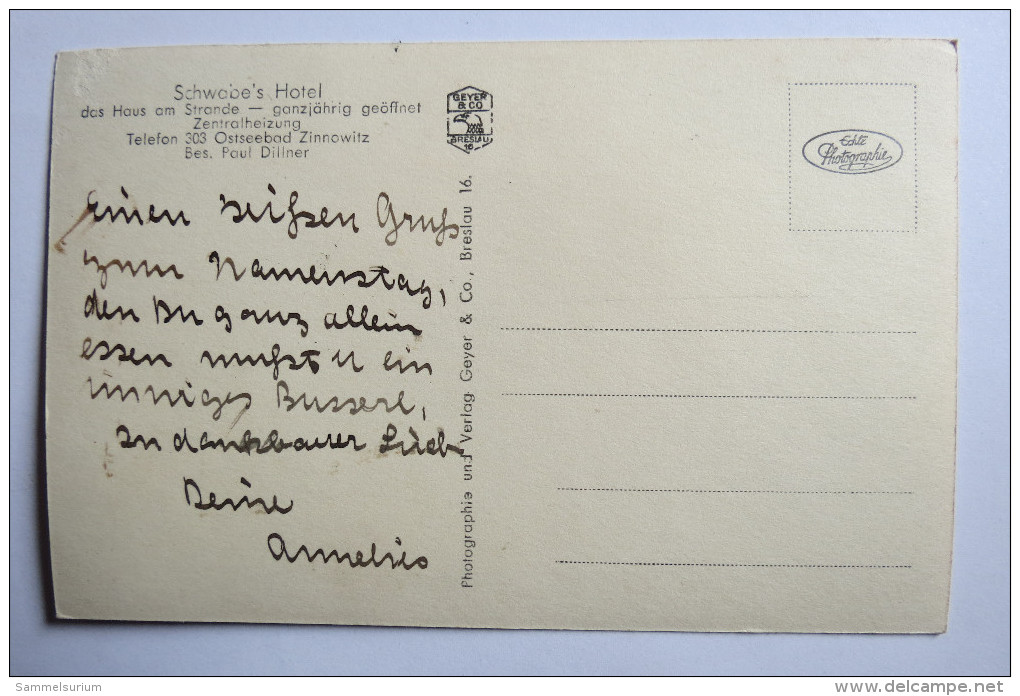 Schwabe's Hotel
das Haus am Strande — ganzjährig geöffnet
Zentralheizung
Telefon 303 Ostseebad Zinnowitz
Bes. Paul Dillner
GEYER
& CO
BRESLAU
16
Echte
Photographie
Einen heißen Gruß
zum Namenstag,
den Du ganz allein
essen mußt u ein
inniges Busserl,
In dankbarer
Deine
Photographie und Verlag Geyer & Co., Breslau 16.
Sammelsurium
www.delcampe.net